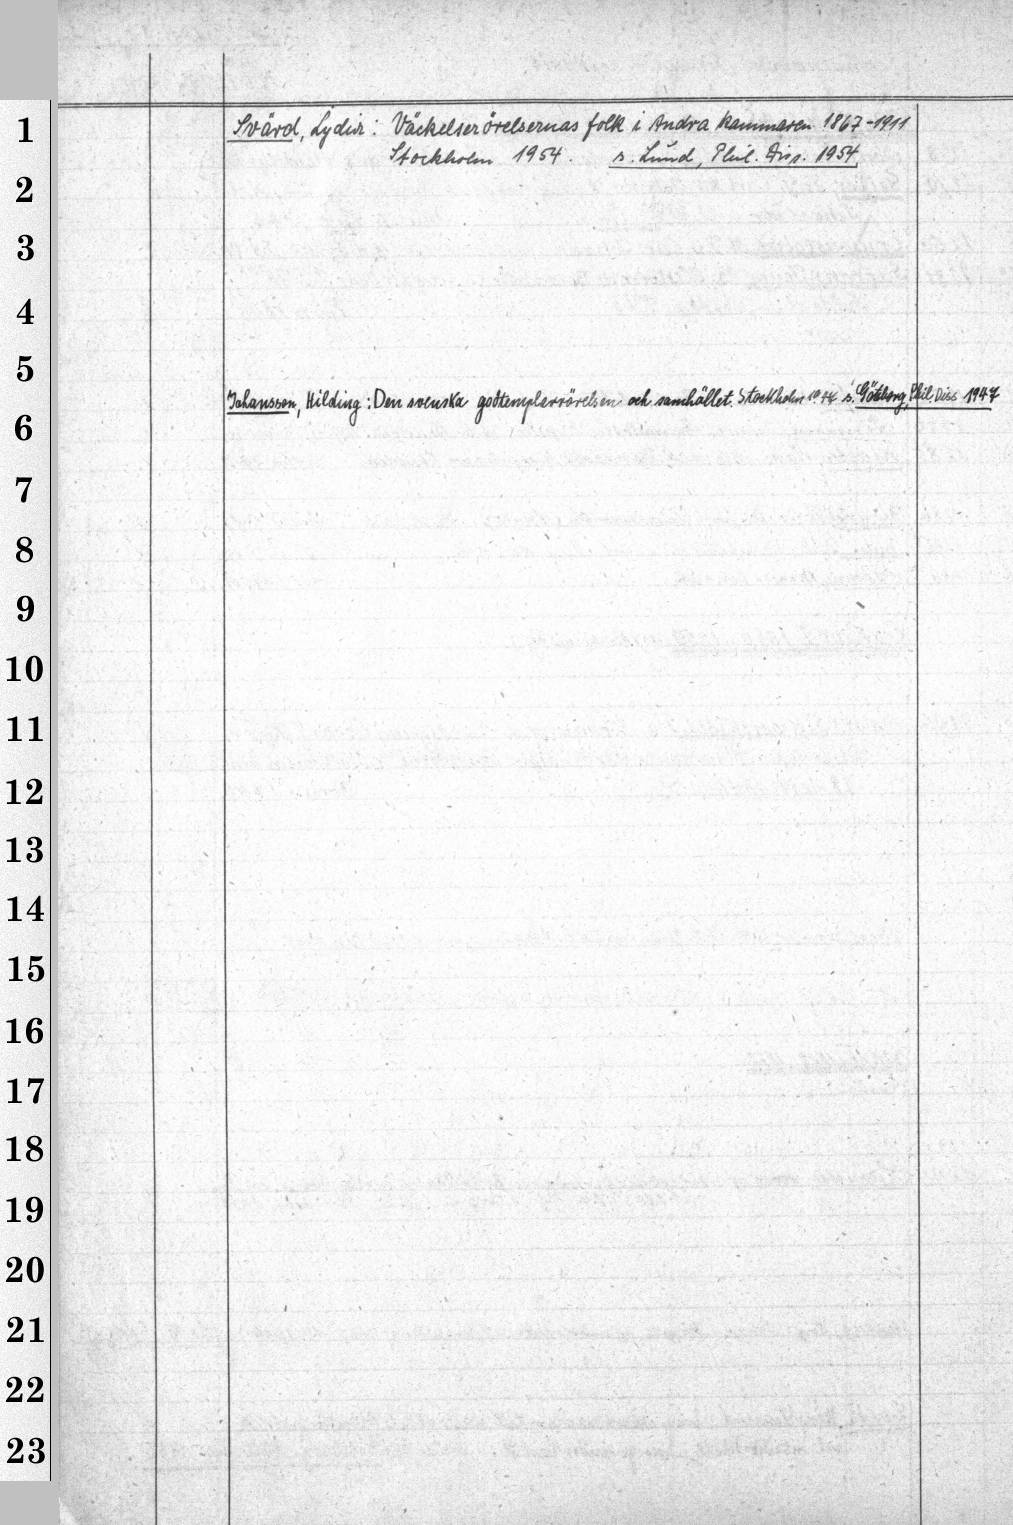 1
Svärd, Lydia: Väckelserörelsernas folk i Andra kammaren 1867-1911
Stockholm 1954. s. Lund, Phil. Diss. 1954
2
3
4
5
Johansson, Hilding: Den svenska godtemplarrörelsen och samhället. Stockholm s. Göteborg, Phil Diss 1947
6
7
8
9
10
11
12
13
14
15
16
17
18
19
20
21
22
23